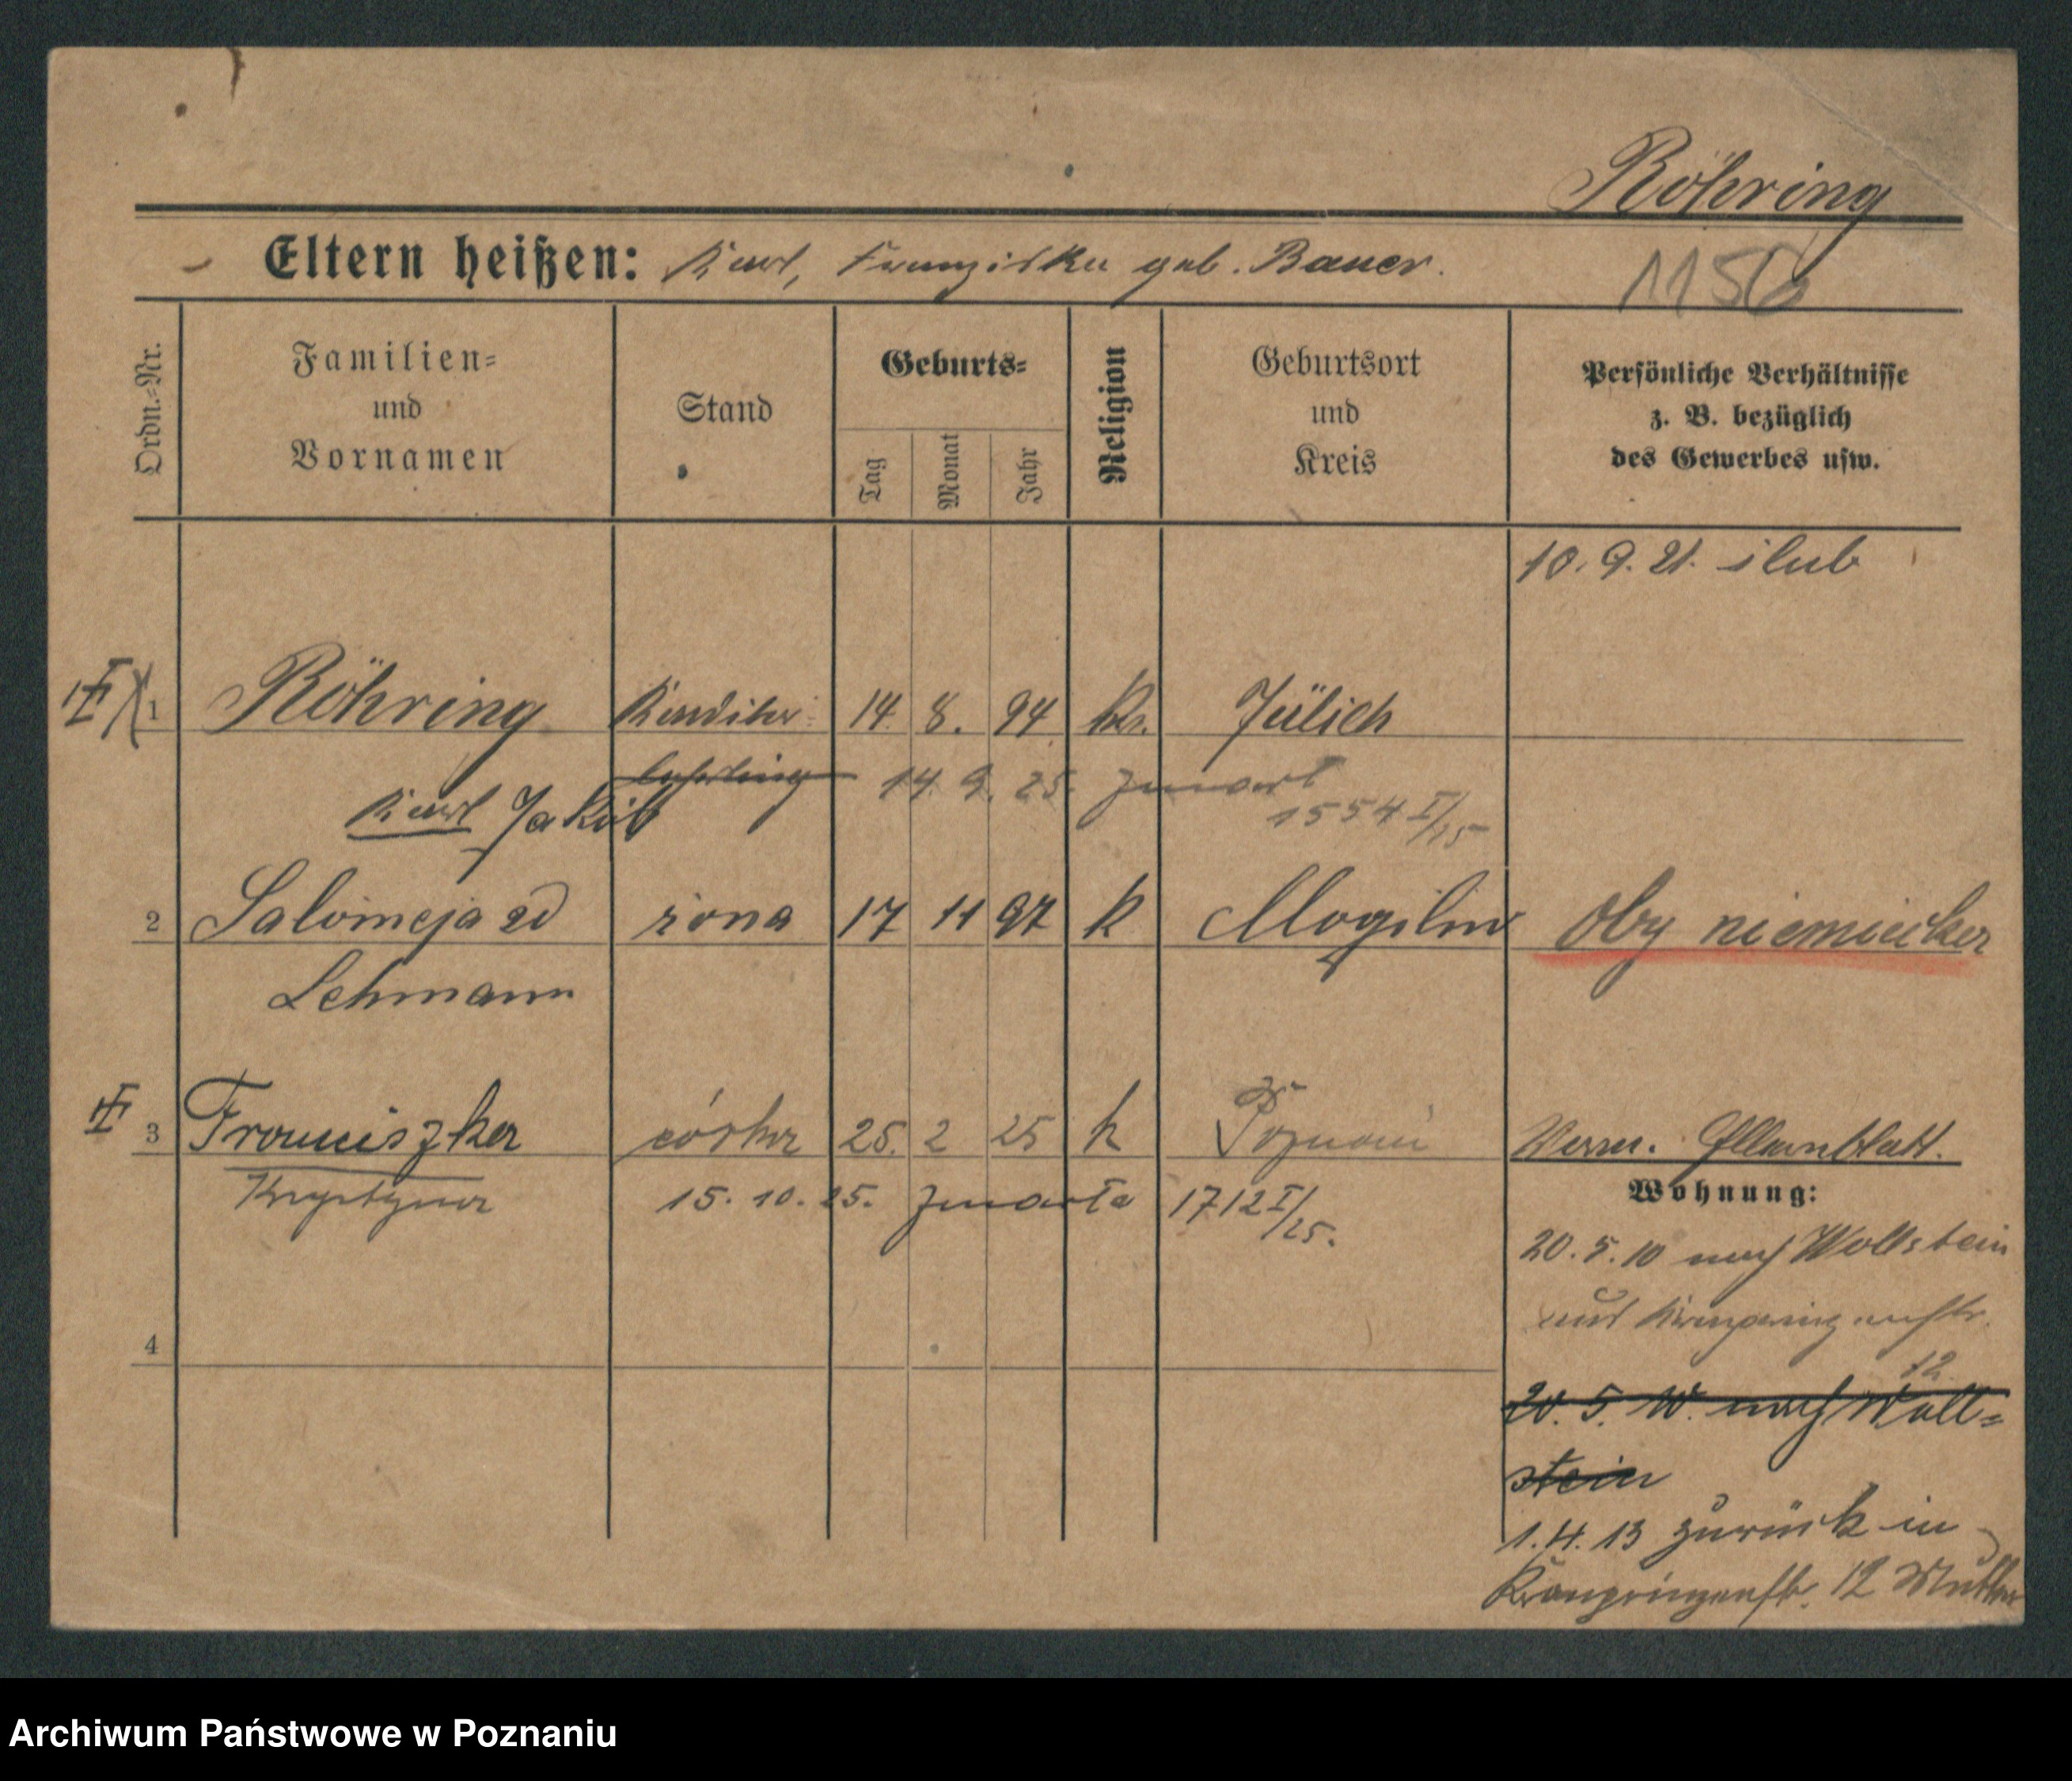 Röhring
Eltern heißen: Karl, Franziska geb. Bauer.
1156
Ordn.-Nr.
Familien-
und
Vornamen
Stand
Geburts-
Tag
Monat
Jahr
Religion
Geburtsort
und
Kreis
Persönliche Verhältnisse
z. B. bezüglich
des Gewerbes usw.
10. 9. 21. ślub
1 Röhring Konditor 14. 8. 94 k. Jülich
lehrling 14. 9. 25. zmarł
Karl Jakob 1554 I/25
2 Salomeja zd żona 17 11 97 k Mogilno Oby niemiecka
Lehmann
3 Franciszka córka 25. 2 25 k Poznań
Krystyna 15. 10. 25. zmarła 1712 I/25.
Wohnung:
20. 5. 10 nach Wollstein
4
12
20. 5. 10. nach Woll-
stein
1. 4. 13 zurück in
Kronprinzenstr. 12 Mutter
Archiwum Państwowe w Poznaniu